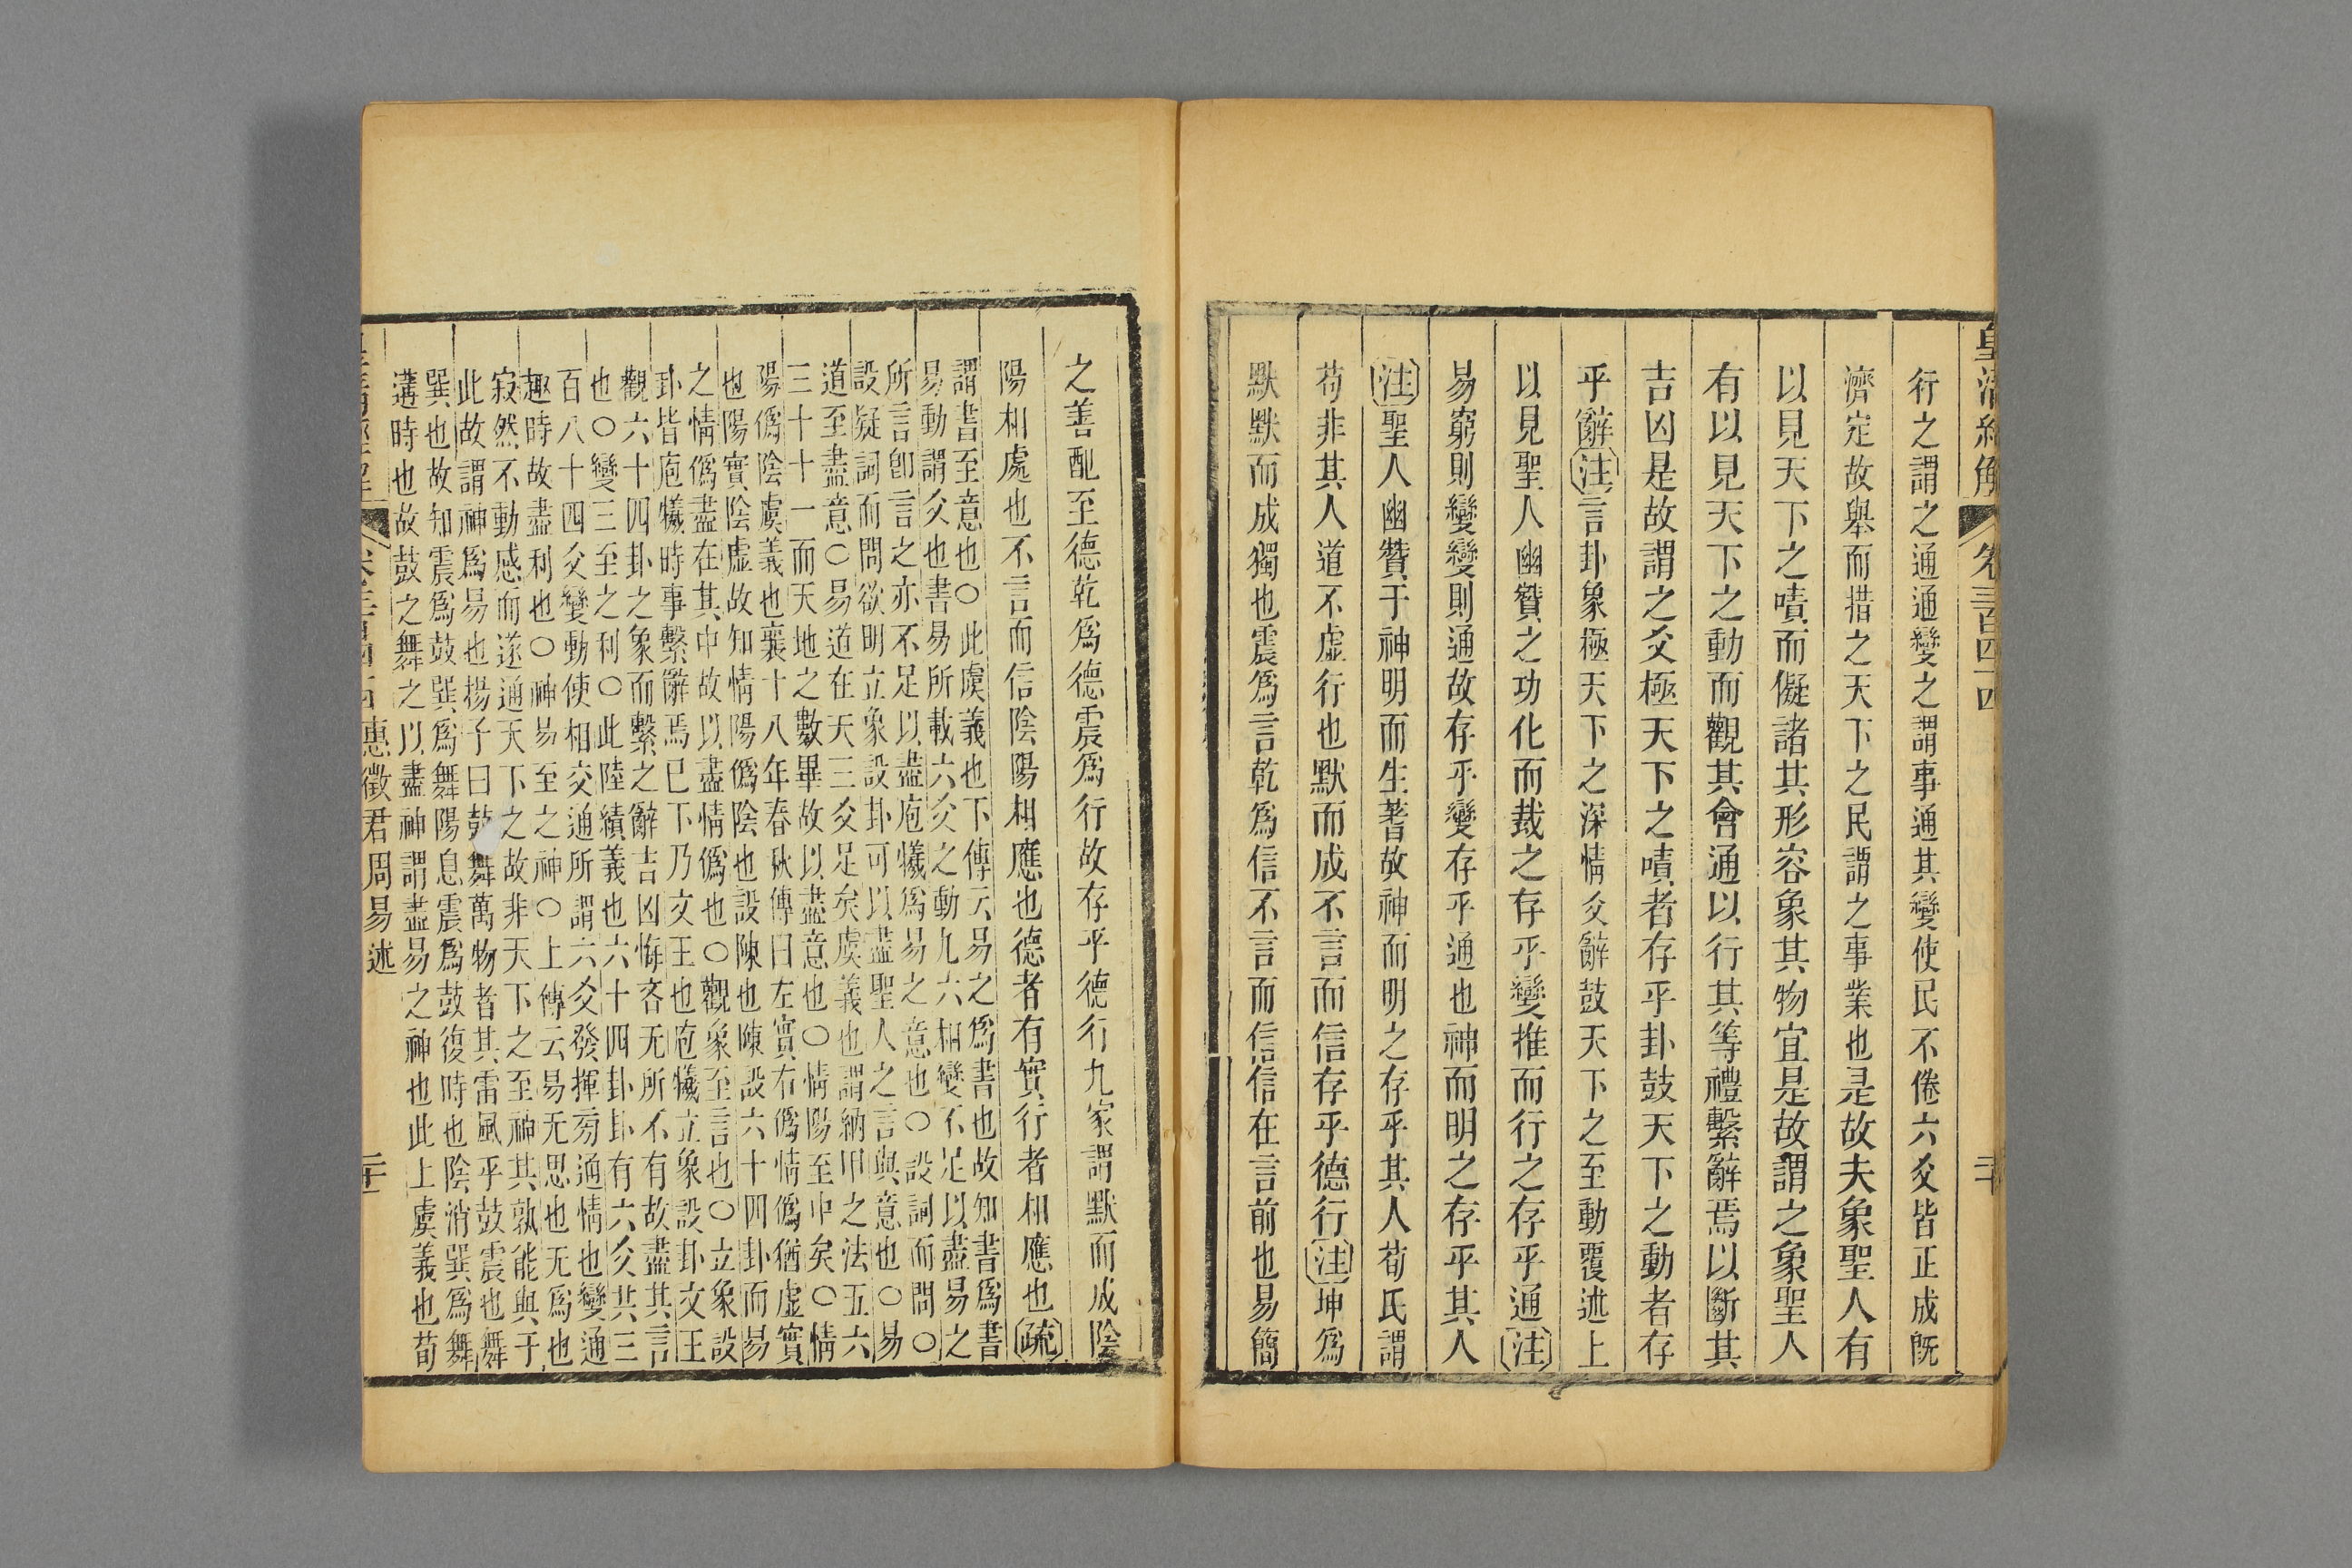 皇淸經解
卷三百四十四
二十
行之謂之通通變之謂事通其變使民不倦六爻皆正成旣
濟定故舉而措之天下之民謂之事業也是故夫象聖人有
以見天下之嘖而儗諸其形容象其物宜是故謂之象聖人
有以見天下之動而觀其會通以行其等禮繫辭焉以斷其
吉凶是故謂之爻極天下之嘖者存乎卦鼓天下之動者存
乎辭注言卦象極天下之深情爻辭鼓天下之至動覆述上
以見聖人幽贊之功化而裁之存乎變推而行之存乎通注
易窮則變變則通故存乎變存乎通也神而明之存乎其人
注聖人幽贊于神明而生蓍故神而明之存乎其人荀氏謂
苟非其人道不虛行也默而成不言而信存乎德行注坤爲
默默而成獨也震爲言乾爲信不言而信信在言前也易簡
之善配至德乾爲德震爲行故存乎德行九家謂默而成陰
陽相處也不言而信陰陽相應也德者有實行者相應也疏
謂書至意也〇此虞義也下傳云易之爲書也故知書爲書
易動謂爻也書易所載六爻之動九六相變不足以盡易之
所言卽言之亦不足以盡庖犧爲易之意也〇設詞而問〇
設疑詞而問欲明立象設卦可以盡聖人之言與意也〇易
道至盡意〇易道在天三爻足矣虞義也謂納甲之法五六
三十十一而天地之數畢故以盡意也〇情陽至中矣〇情
陽僞陰虞義也襄十八年春秋傳曰左實右僞情僞猶虛實
也陽實陰虛故知情陽僞陰也設陳也陳設六十四卦而易
之情僞盡在其中故以盡情僞也〇觀象至言也〇立象設
卦皆庖犧時事繫辭焉已下乃文王也庖犧立象設卦文王
觀六十四卦之象而繫之辭吉凶悔吝无所不有故盡其言
也〇變三至之利〇此陸績義也六十四卦卦有六爻共三
百八十四爻變動使相交通所謂六爻發揮旁通情也變通
趣時故盡利也〇神易至之神〇上傳云易无思也无爲也
寂然不動感而遂通天下之故非天下之至神其孰能與于
此故謂神爲易也揚子曰鼓舞萬物者其雷風乎鼓震也舞
巽也故知震爲鼓巽爲舞陽息震爲鼓復時也陰消巽爲舞
遘時也故鼓之舞之以盡神謂盡易之神也此上虞義也荀
惠徵君周易述